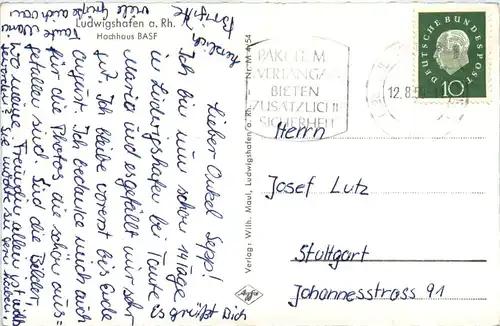 Ludwigshafen a. Rh.
Hochhaus BASF
Lieber Onkel Sepp!
Ich bin nun schon 14 Tage
in Ludwigshafen bei Tante
Maria und es gefällt mir sehr
gut. Ich bleibe vorerst bis Ende
August. Ich bedanke mich auch
für die Photos, die schön aus-
gefallen sind. Sind die Bilder
meiner Freundin allen
geworden? Sie möchte sie gern haben.
Es grüßt Dich
herzlich
Brigitte
viele Grüße auch von
Tante Maria
Verlag: Wilh. Maul, Ludwigshafen a. Rh. – Nr. M 4/54
Agfa
PAKETE M
VERLANGA
BIETEN
ZUSÄTZLICHE
SICHERHEIT
12.8.59
DEUTSCHE BUNDESPOST
10
Herrn
Josef Lutz
Stuttgart
Johannesstrass 91